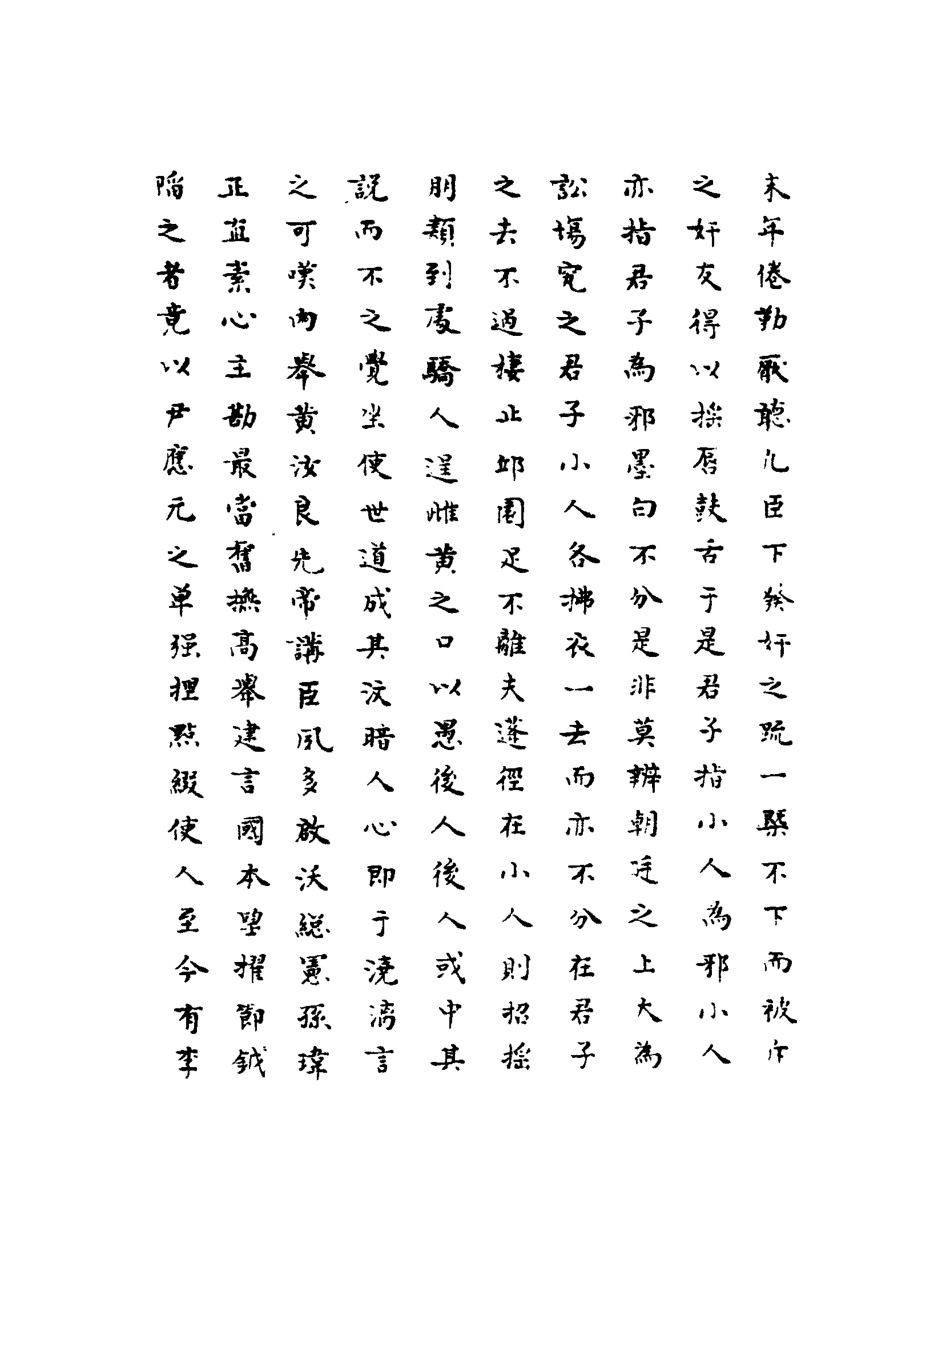 末年倦勤厭聽凡臣下發奸之疏一槩不下而被斥
之奸友得以搖唇鼓舌于是君子指小人為邪小人
亦指君子為邪墨白不分是非莫辨朝廷之上大為
訟塲究之君子小人各拂衣一去而亦不分在君子
之去不過棲止邱園足不離夫蓬徑在小人則招搖
朋類到處驕人逞雌黄之口以愚後人後人或中其
説而不之覺坐使世道成其汶暗人心即于澆漓言
之可嘆內舉黄汝良先帝講臣夙多啟沃総憲孫瑋
正直素心主勘最當舊撫高舉建言國本望擢節鉞
陷之者竟以尹應元之单强捏點綴使人至今有李